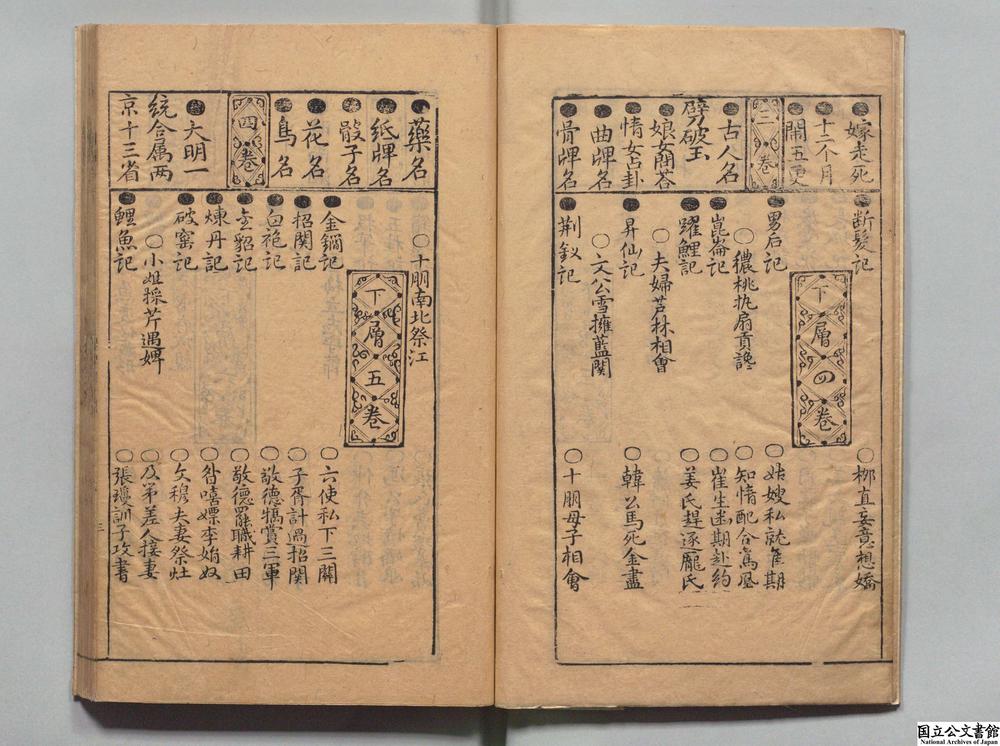 嫁走死
十二个月
鬧五更
三卷
古人名
劈破玉
娘女問荅
情女占卦
曲牌名
骨牌名
断髮記
桞直妄意想嬌
下層四卷
姑嫂私就隹期
男后記
知情配合鸞凰
穠桃扸扇貢讒
崑崙記
崔生迷期赴約
躍鯉記
姜氏趕逐龐氏
夫婦芦林相會
昇仙記
韓公馬死金盡
文公雪擁藍関
荆釵記
十朋母子相會
藥名
紙牌名
骰子名
花名
鳥名
四卷
大明一
統合属两
京十三省
十朋南北祭江
下層五卷
金鐧記
六使私下三關
招関記
子胥計過招関
白袍記
敬德犒賞三軍
金貂記
敬德罷職耕田
煉丹記
嘻嫖李娟奴
破窰記
文穆夫妻祭灶
小姐採芹遇婢
及苐差人接妻
鯉魚記
張瓊訓子攻書
三
国立公文書館
National Archives of Japan